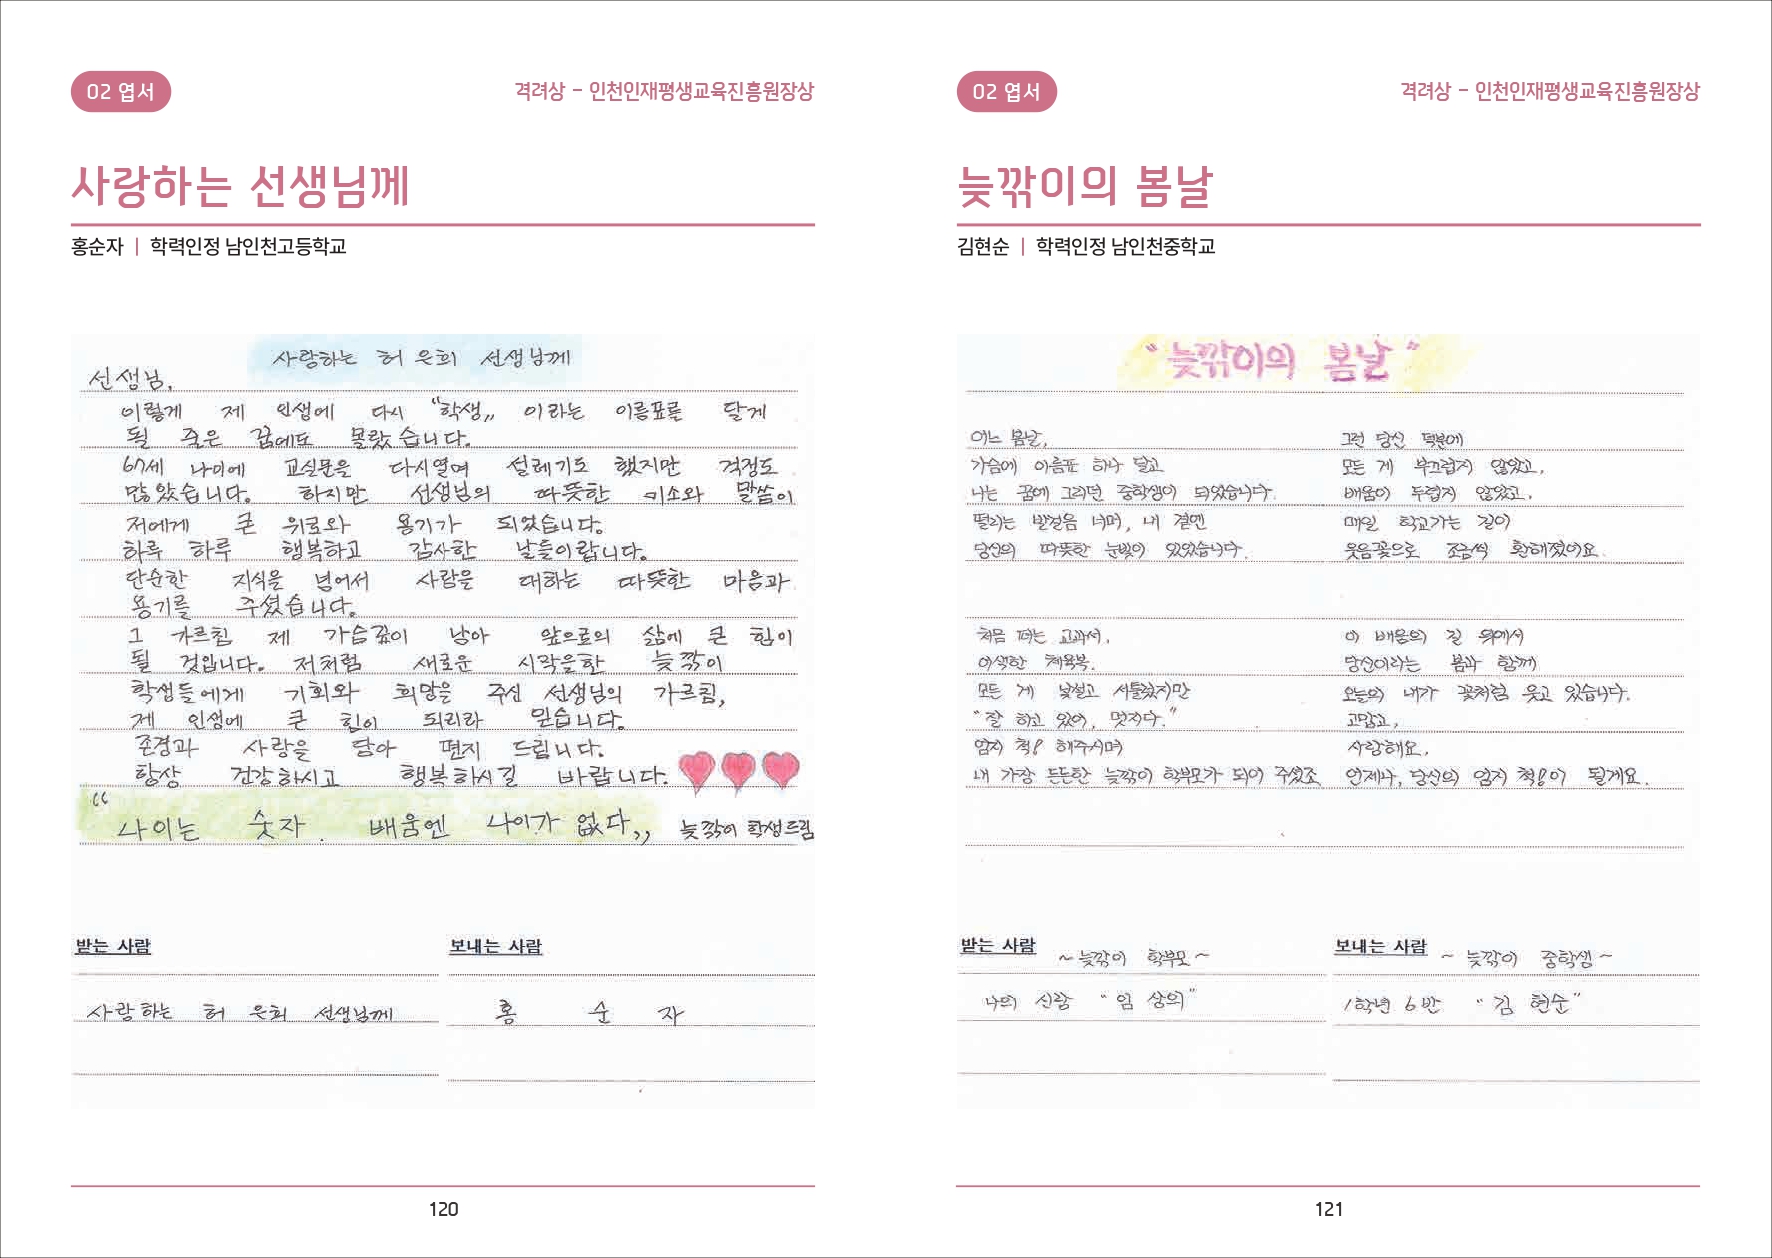 02 엽서
격려상 - 인천인재평생교육진흥원장상
사랑하는 선생님께
홍순자 | 학력인정 남인천고등학교
사랑하는 허 은희 선생님께
선생님,
이렇게 제 인생에 다시 "학생" 이라는 이름표를 달게
될 줄은 꿈에도 몰랐습니다.
67세 나이에 교실문을 다시열며 설레기도 했지만 걱정도
많았습니다. 하지만 선생님의 따뜻한 미소와 말씀이
저에게 큰 위로와 용기가 되었습니다.
하루 하루 행복하고 감사한 날들이랍니다.
단순한 지식을 넘어서 사람을 대하는 따뜻한 마음과
용기를 주셨습니다.
그 가르침 제 가슴깊이 남아 앞으로의 삶에 큰 힘이
될 것입니다. 저처럼 새로운 시작을한 늦깎이
학생들에게 기회와 희망을 주신 선생님의 가르침,
제 인생에 큰 힘이 되리라 믿습니다.
존경과 사랑을 담아 편지 드립니다.
항상 건강하시고 행복하시길 바랍니다.
"나이는 숫자. 배움엔 나이가 없다,, 늦깎이 학생드림
받는 사람
사랑하는 허 은희 선생님께
보내는 사람
홍 순 자
120
02 엽서
격려상 - 인천인재평생교육진흥원장상
늦깎이의 봄날
김현순 | 학력인정 남인천중학교
"늦깎이의 봄날"
어느 봄날,
가슴에 이름표 하나 달고
나는 꿈에 그리던 중학생이 되었습니다.
떨리는 발걸음 너머, 내 곁엔
당신의 따뜻한 눈빛이 있었습니다.
처음 펴는 교과서,
어색한 체육복.
모든 게 낯설고 서툴렀지만
"잘 하고 있어, 멋지다."
엄지 척! 해주시며
내 가장 든든한 늦깎이 학부모가 되어 주셨죠
그런 당신 덕분에
모든 게 부끄럽지 않았고,
배움이 두렵지 않았고,
매일 학교가는 길이
웃음꽃으로 조금씩 환해졌어요.
이 배움의 길 위에서
당신이라는 봄과 함께
오늘의 내가 꽃처럼 웃고 있습니다.
고맙고,
사랑해요,
언제나, 당신의 엄지 척!이 될게요.
받는 사람 ~늦깎이 학부모~
나의 신랑 "임 상의"
보내는 사람 ~ 늦깎이 중학생~
1학년 6반 "김 현순"
121